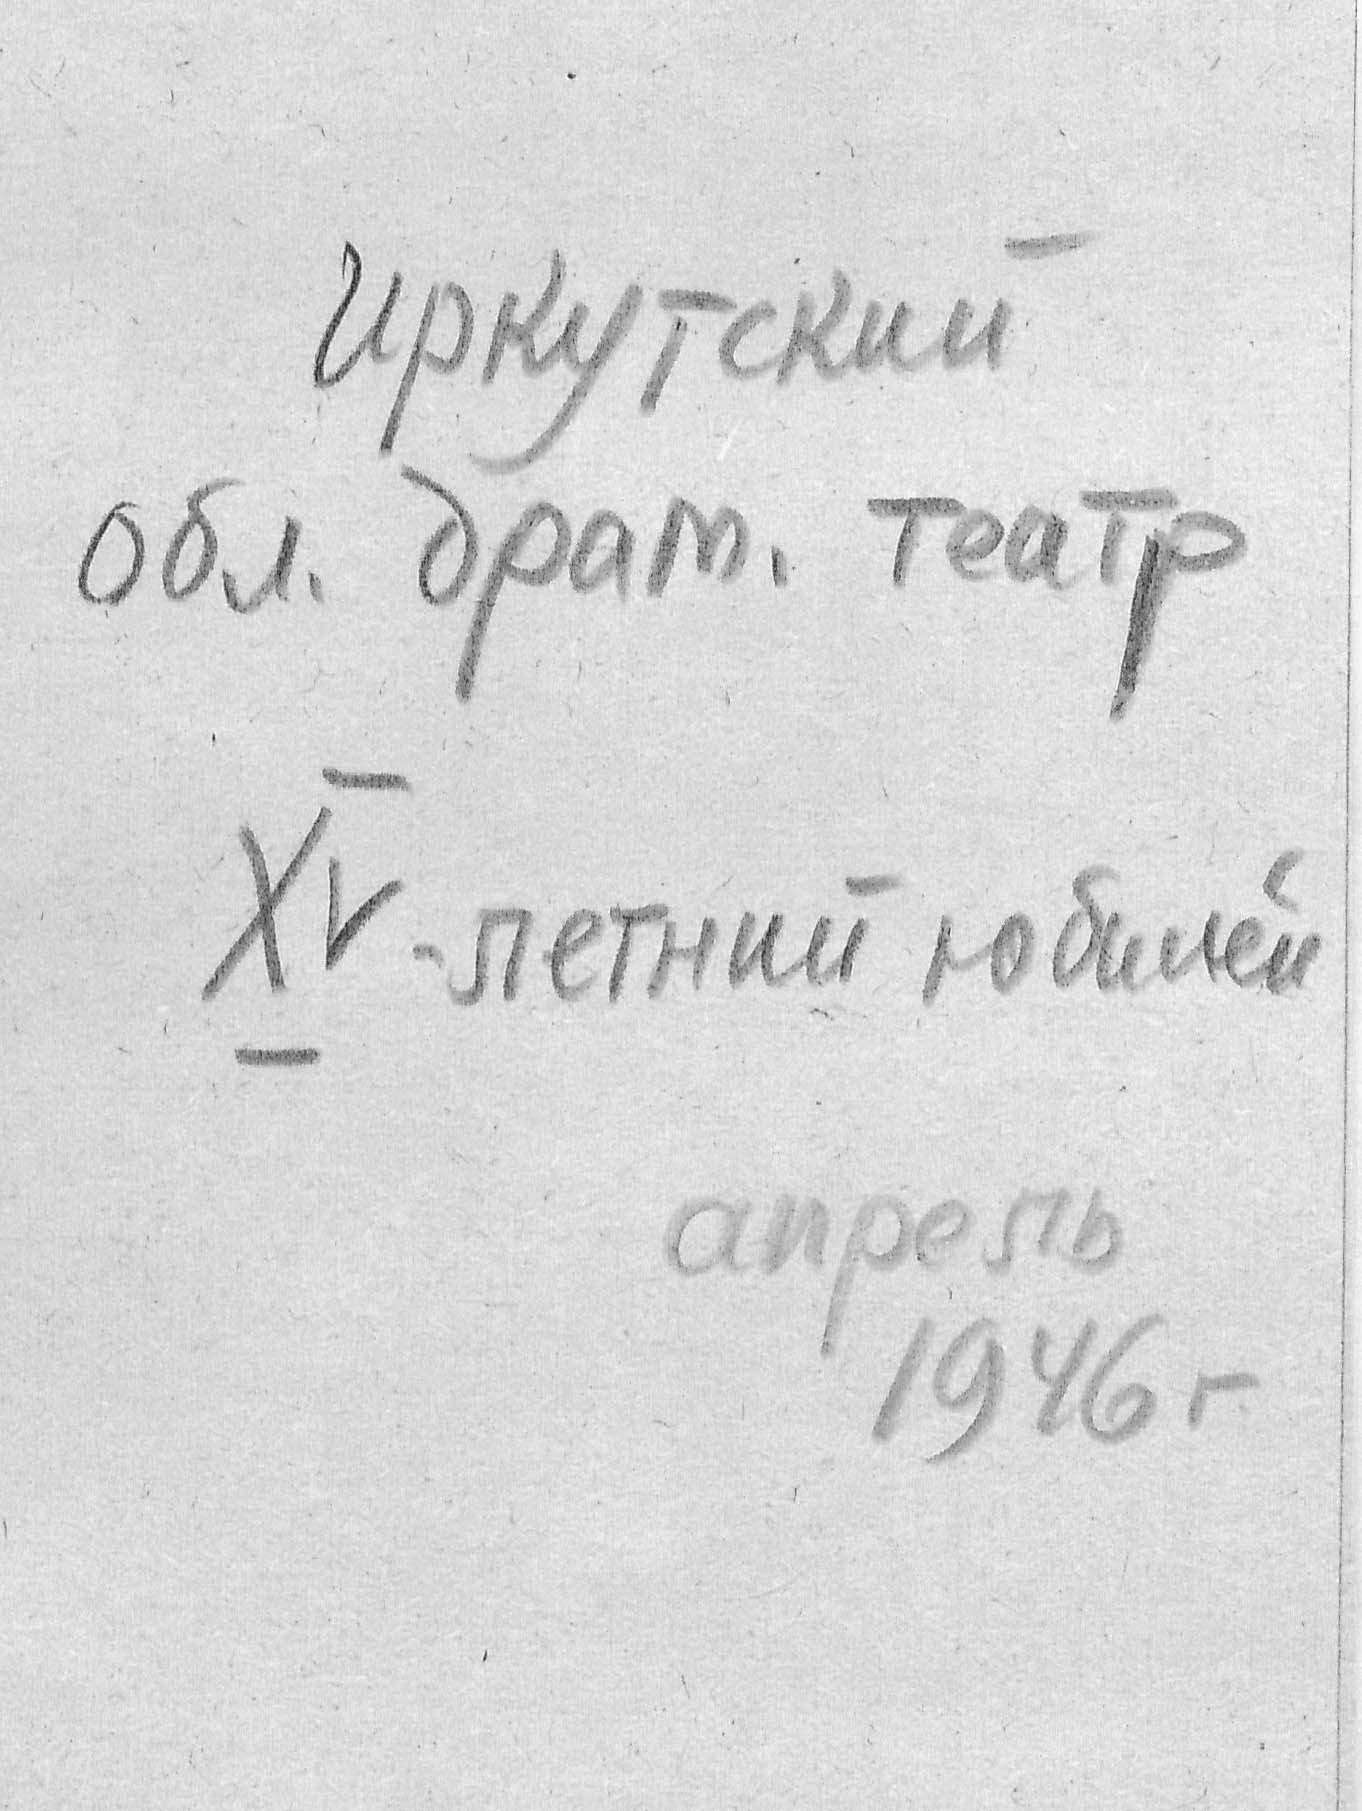 Иркутский
обл. драм. театр
XV-летний юбилей
апрель
1946 г